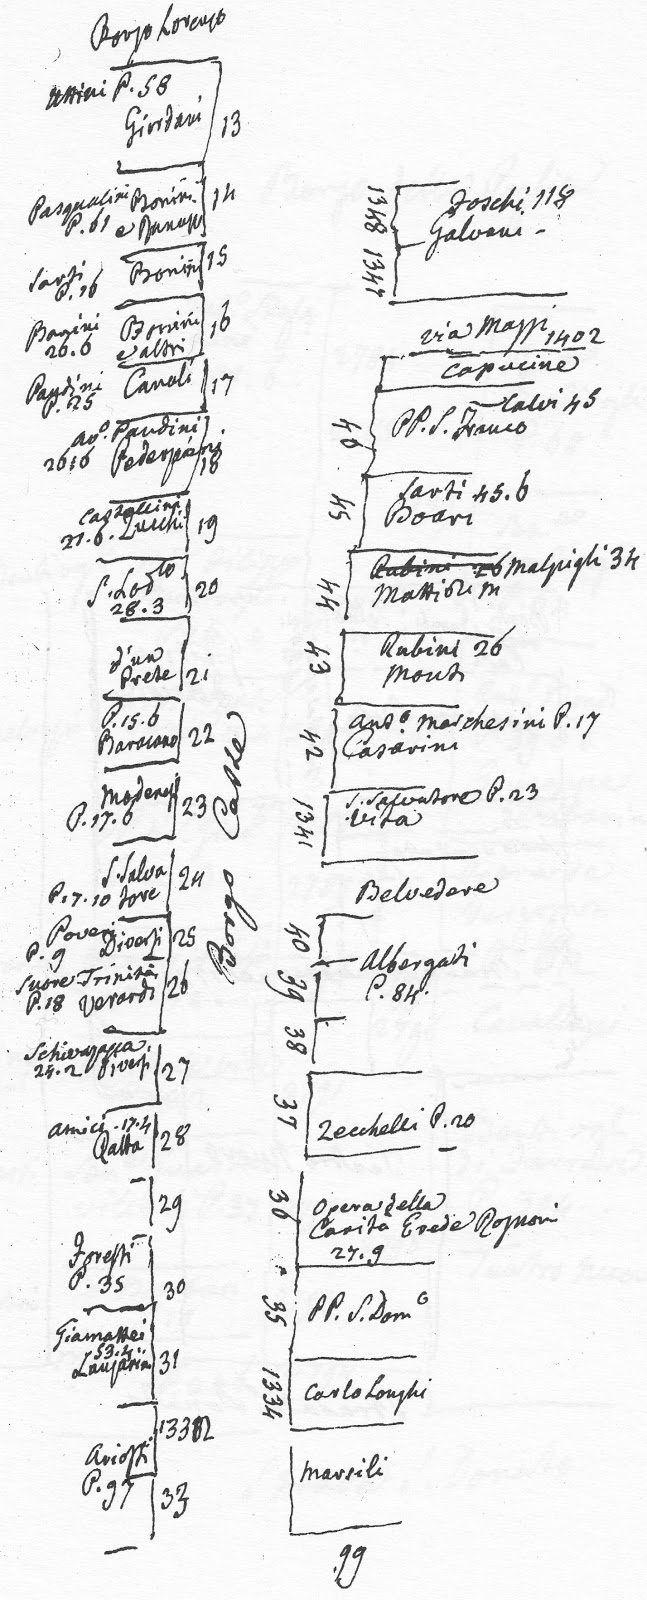 Borgo Lorenzo
P. 58
Giordani
13
Pasqualini Bonini
P. 61 e
14
Sarti Bonini
P. 16
15
Bonini
20.6 e altri
16
Pandini Canali
P. 25
17
Pandini
2616
18
Castellini
21.6. Zucchi
19
S. Lod
28.3
20
d'un
Prete
21
P. 15.6
Baracano
22
P. 17.6
23
S. Salva
P. 17.10 tore
24
Poveri
P. 9 Diversi
25
Suore Trinità
P. 18 Verardi
26
Schiappa
24.2 Diversi
27
Amici 17.4
Ratta
28
29
P. 35
30
Giamattei
53.4
31
Ariosti
P. 97
33
Borgo Casse
Foschi 118
Galvani
1348
1347
via Mappi 1402
Capucine
Calvi 45
PP. S. Franco
46
Sarti 45.6
Boari
45
Rubini 26 Malpigli 34
44
Rubini 26
Monti
43
Marchesini P. 17
Casarini
42
S. Salvatore P. 23
Vita
1341
Belvedere
40
39
38
Albergati
P. 84.
37
Zecchelli P. 20
36
Opera della
Carità Erede Rognoni
27.9
35
PP. S. Dom
1334
Carlo Longhi
Marsili
99